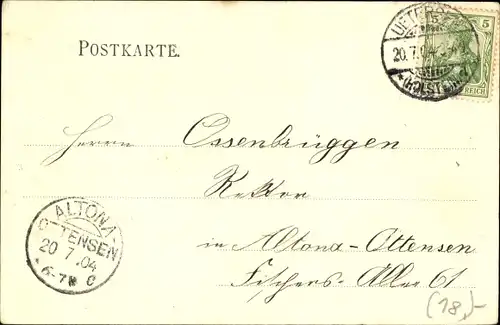 POSTKARTE.
UETERSEN
20.7.04
*(HOLSTEIN)*
5
REICH
Herrn Ossenbrüggen
Rektor
in Altona-Ottensen
Fischers-Allee 61
ALTONA-
OTTENSEN
20 7.04
*6-7N C
(18,-